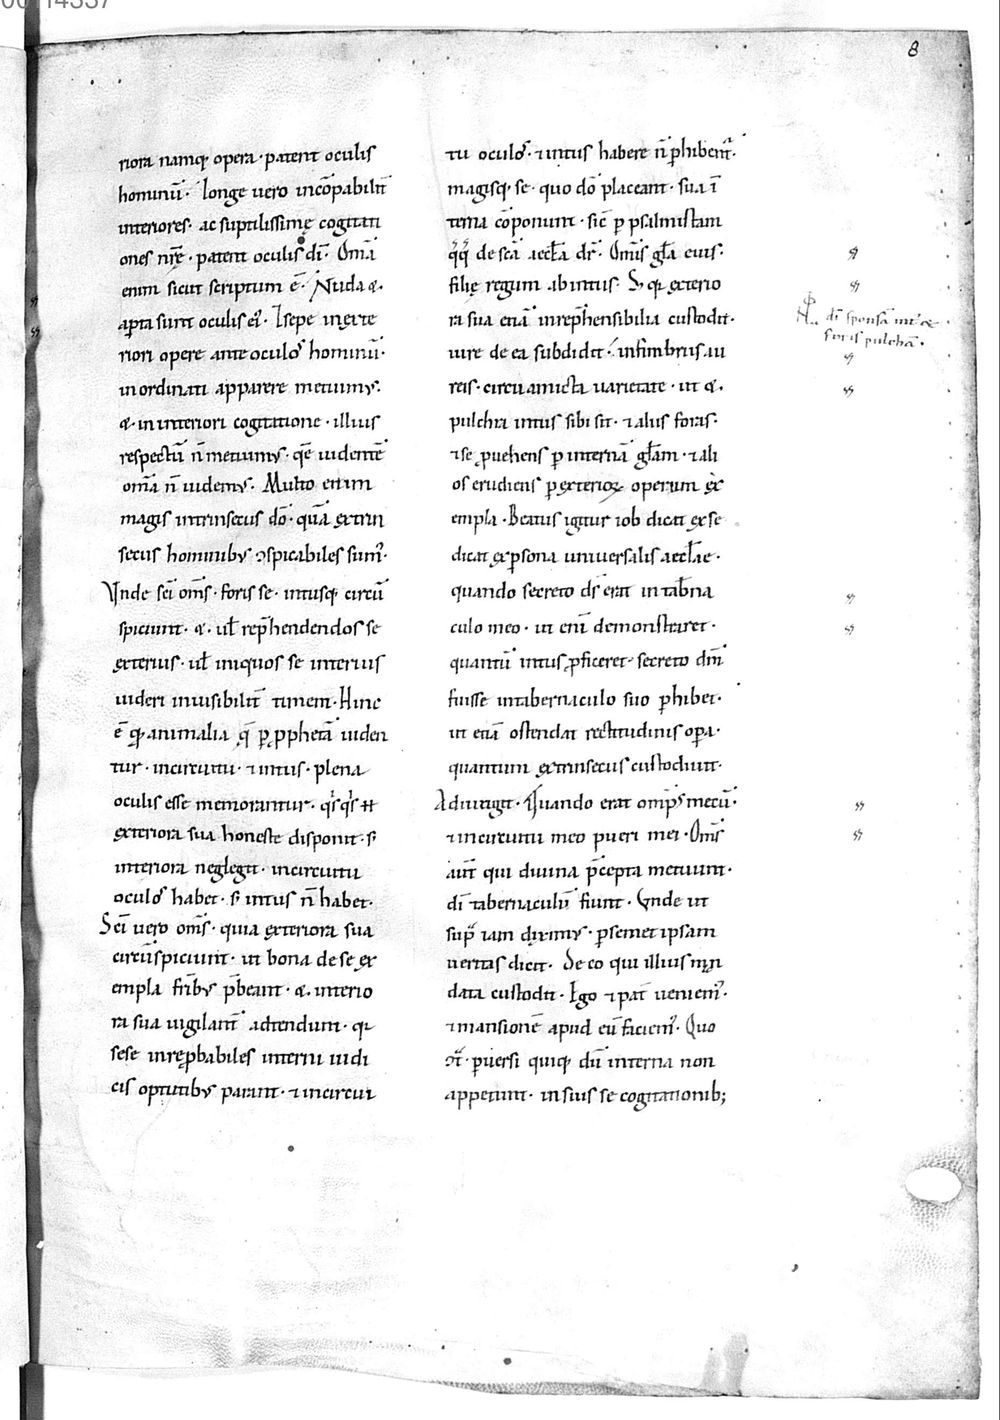 8
riora namq; opera · patent oculis
hominū · longe uero incōpabilit̄
interiores · ac suptilissimę cogitati
ones nr̄ę · patent oculis dī · Om̄a
enim sicut scriptum ē · Nuda &
ap̱ta sunt oculis ei᾽ · Isepe in exte
riori opere ante oculos hominū ·
inordinati apparere metuim᾽ ·
& · in interiori cogitatione · illius
respectū n̄ metuim᾽ · quē uidentē
om̄a n̄ uidem᾽ · Multo enim
magis intrinsecus dō · quā extrin
secus hominib᾽ ɔspicabiles sum᾽ ·
Vnde sc̄i om̄s · foris se · intusq; circū
spiciunt · & · ul̄ rep̄hendendos se
exterius · ul̄ iniquos se interius
uideri inuisibilit̄ timent · Hinc
ē qđ animalia quę p̱ p̱phetā uiden
tur · in circuitu · ⁊ intus · plena
oculis esse memorantur · q̇sq̇s ħ
exteriora sua honeste disponit · s;
interiora neglegit · in circuitu
oculos habet · s; intus n̄ habet ·
Sc̄i uero om̄s · quia exteriora sua
circūspiciunt · ut bona de se ex
empla fr̄ib᾽ p̄beant · & · interio
ra sua uigilant̄ adtendunt · qa
sese inrep̱babiles interni iudi
cis optutib᾽ parant · ⁊ in circui
tu oculos · ⁊ intus habere n̄ p̱hibent᷑ ·
magisq; se · quo dō placeant · sua ī
terna cōponunt · sic̄ p̱ psalmistam
q̇q̇ de sc̄a aecl̄a dr̄ · Om̄is gl̄a eius ·
filię regum ab intus · S; qa exterio
ra sua etiā inrep̄hensibilia custodit ·
iure de ea subdidit · in fimbriis au
reis · circūamicta uarietate · ut & ·
pulchra intus sibi sit · ⁊ aliis foras ·
⁊ se p̱uehens p̱ internā gl̄am · ⁊ ali
os erudiens p̱ exterioꝝ operum ex
empla · Beatus igitur iob dicat ex se
dicat ex p̱sona uniuersalis aecl̄ae ·
quando secreto ds̄ erat in tab̄na
culo meo · ut enī demonstraret ·
quantū intus p̱ficeret · secreto dn̄m
fuisse in tabernaculo suo p̱hibet ·
ut etiā ostendat rectitudinis op̱a ·
quantum extrinsecus custodiuit ·
Adiungit · Quando erat omp̄s mecū ·
⁊ in circuitu meo pueri mei · Om̄s
aut̄ qui diuina p̄cepta metuunt ·
dī tabernaculū fiunt · Vnde ut
sup̱ iam dixim᾽ · p̱ semet ipsam
ueritas dicit · De eo qui illius man
data custodit · Ego ⁊ pat̄ ueniem᾽ ·
⁊ mansionē apud eū faciem᾽ · Quo
ɔt̄ · p̱uersi quiq; dū interna non
appetunt · in suis se cogitationib;
dī sponsā int᾽ &
foris pulchā ·